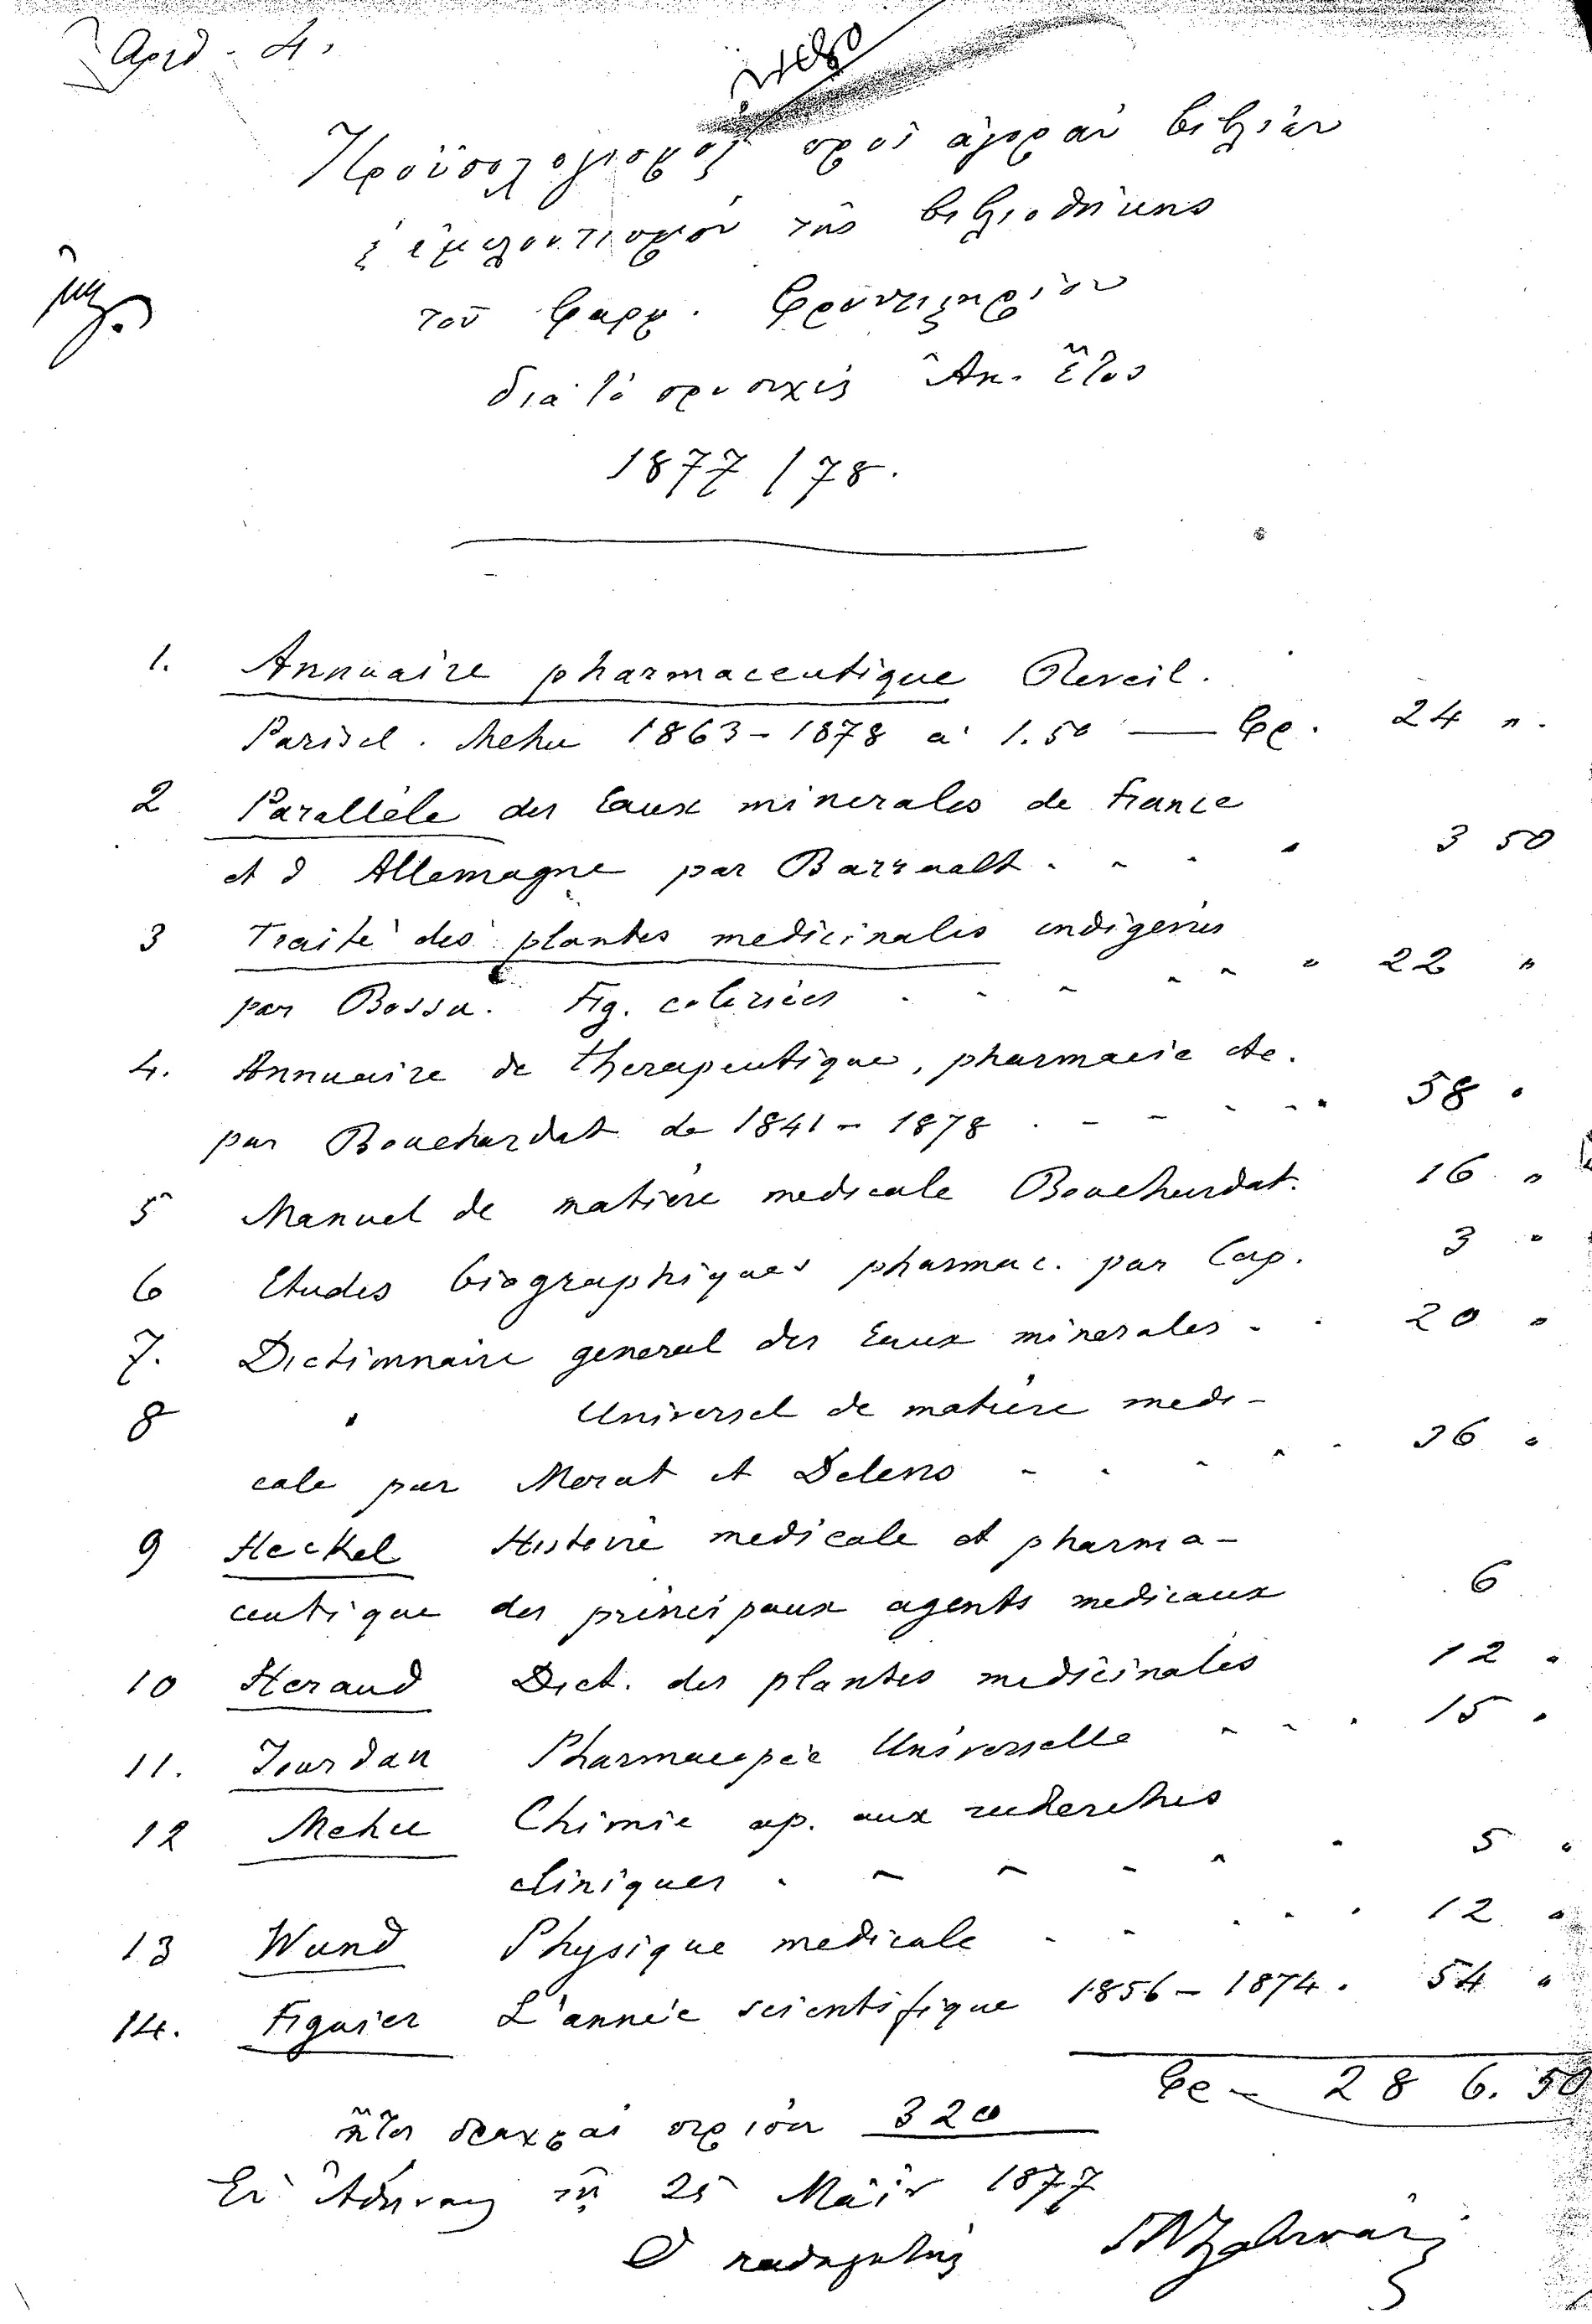 Αριθ. 4.
Προϋπολογισμὸς πρὸς ἀγορὰν βιβλίων
ἐμπλουτισμὸν τῆς βιβλιοθήκης
τοῦ Φαρμ. Φροντιστηρίου
διὰ τὸ προσεχὲς Ἀκ. ἔτος
1877/78.
1. Annuaire pharmaceutique Reveil.
Parisel. Mehu 1863-1878 a 1.50 — Φρ. 24 "
2 Parallèle des Eaux minerales de France
et d Allemagne par Barrault . . . " 3 50
3 Traité des plantes medicinales indigènes
par Bossu. Fig. coloriées . . . . . " 22 "
4. Annuaire de therapeutique, pharmacie etc.
par Bouchardat de 1841-1878 . . . . " 58 "
5 Manuel de matière medicale Bouchardat. 16 "
6 Etudes biographiques pharmac. par Cap. 3 "
7. Dictionnaire general des Eaux minerales . . 20 "
8 " Universel de matière medi-
cale par Merat et Delens . . . . . 36 "
9 Heckel Histoire medicale et pharma-
ceutique des principaux agents medicaux 6
10 Heraud Dict. des plantes medicinales 12 "
11. Jourdan Pharmacopée Universelle . . . 15 "
12 Mehu Chimie ap. aux recherches
cliniques . . . . . . 5 "
13 Wund Physique medicale . . . . . 12 "
14. Figuier L'année scientifique 1856-1874. 54 "
Φρ - 286.50
ἤτοι δραχμαὶ περίπου 320
Ἐν Ἀθήναις τῇ 25 Μαΐου 1877
Ὁ καθηγητής